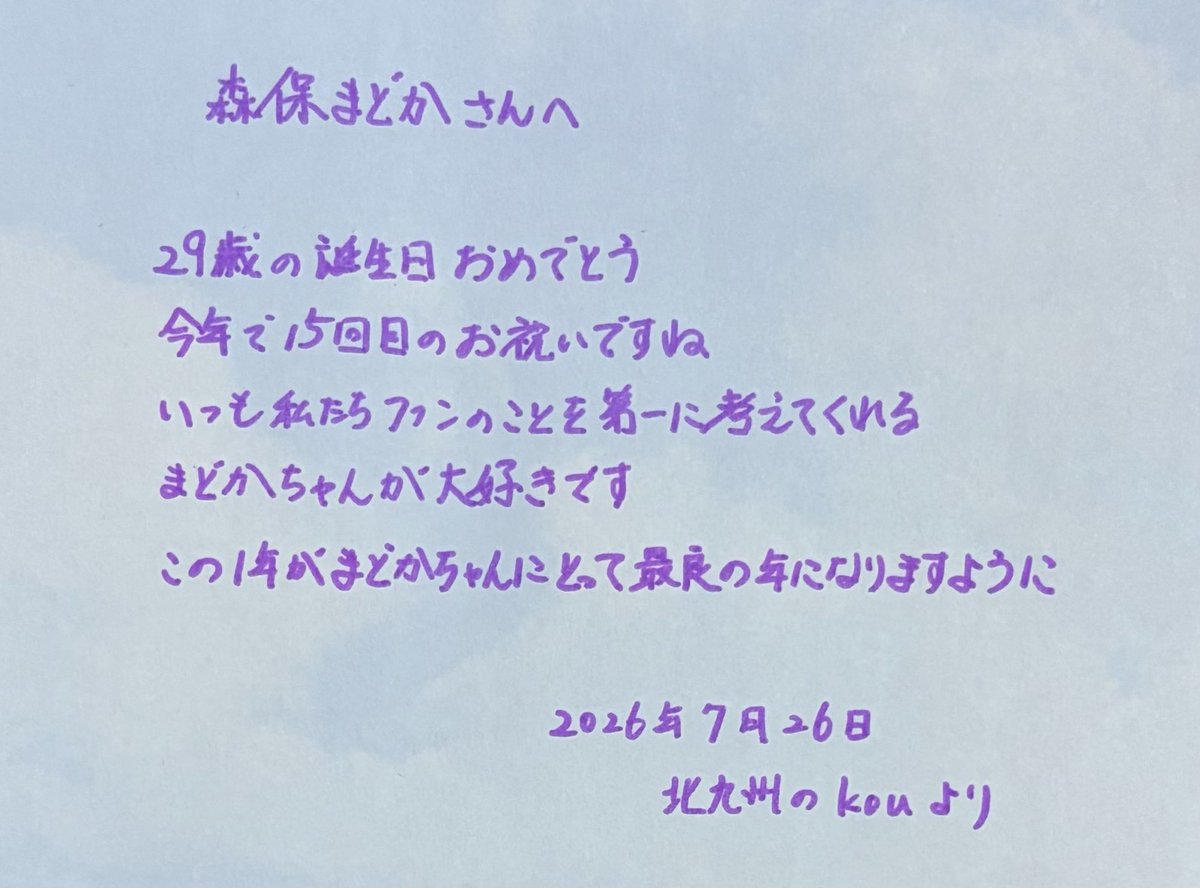 森保まどかさんへ
29歳の誕生日おめでとう
今年で15回目のお祝いですね
いつも私たちファンのことを第一に考えてくれる
まどかちゃんが大好きです
この1年がまどかちゃんにとって最良の年になりますように
2026年7月26日
北九州のkouより